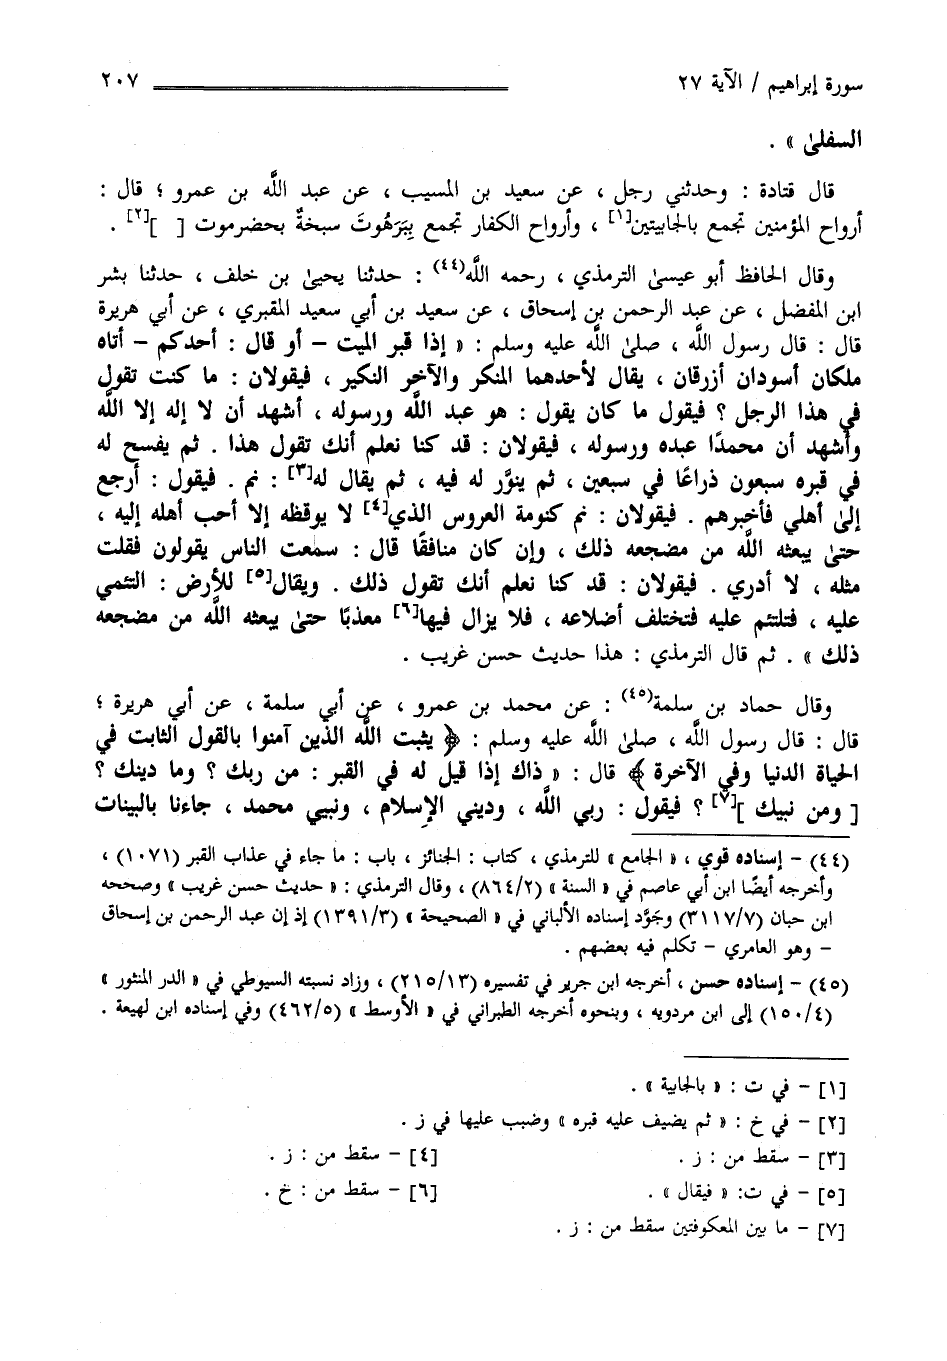 سورة إبراهيم / الآية ٢٧ ٢٠٧
السفلىٰ » .
قال قتادة : وحدثني رجل ، عن سعيد بن المسيب ، عن عبد اللَّه بن عمرو ؛ قال :
أرواح المؤمنين تجمع بالجابيتين[١] ، وأرواح الكفار تجمع بِبَرَهُوتَ سبخةٌ بحضرموت [ ][٢] .
وقال الحافظ أبو عيسىٰ الترمذي ، رحمه اللَّه(٤٤) : حدثنا يحيىٰ بن خلف ، حدثنا بشر
ابن المفضل ، عن عبد الرحمن بن إسحاق ، عن سعيد بن أبي سعيد المقبري ، عن أبي هريرة
قال : قال رسول اللَّه ، صلىٰ اللَّه عليه وسلم : « إذا قبر الميت – أو قال : أحدكم – أتاه
ملكان أسودان أزرقان ، يقال لأحدهما المنكر والآخر النكير ، فيقولان : ما كنت تقول
في هذا الرجل ؟ فيقول ما كان يقول : هو عبد اللَّه ورسوله ، أشهد أن لا إله إلا اللَّه
وأشهد أن محمدًا عبده ورسوله ، فيقولان : قد كنا نعلم أنك تقول هذا . ثم يفسح له
في قبره سبعون ذراعًا في سبعين ، ثم ينوَّر له فيه ، ثم يقال له[٣] : نم . فيقول : أرجع
إلىٰ أهلي فأخبرهم . فيقولان : نم كنومة العروس الذي[٤] لا يوقظه إلا أحب أهله إليه ،
حتىٰ يبعثه اللَّه من مضجعه ذلك ، وإن كان منافقًا قال : سمعت الناس يقولون فقلت
مثله ، لا أدري . فيقولان : قد كنا نعلم أنك تقول ذلك . ويقال[٥] للأرض : التئمي
عليه ، فتلتئم عليه فتختلف أضلاعه ، فلا يزال فيها[٦] معذبًا حتىٰ يبعثه اللَّه من مضجعه
ذلك » . ثم قال الترمذي : هذا حديث حسن غريب .
وقال حماد بن سلمة(٤٥) : عن محمد بن عمرو ، عن أبي سلمة ، عن أبي هريرة ؛
قال : قال رسول اللَّه ، صلىٰ اللَّه عليه وسلم : ﴿ يثبت اللَّه الذين آمنوا بالقول الثابت في
الحياة الدنيا وفي الآخرة ﴾ قال : « ذاك إذا قيل له في القبر : من ربك ؟ وما دينك ؟
[ ومن نبيك ][٧] ؟ فيقول : ربي اللَّه ، وديني الإسلام ، ونبيي محمد ، جاءنا بالبينات
(٤٤) – إسناده قوي ، « الجامع » للترمذي ، كتاب : الجنائز ، باب : ما جاء في عذاب القبر (١٠٧١) ،
وأخرجه أيضًا ابن أبي عاصم في « السنة » (٨٦٤/٢) ، وقال الترمذي : « حديث حسن غريب » وصححه
ابن حبان (٣١١٧/٧) وجَوَّد إسناده الألباني في « الصحيحة » (١٣٩١/٣) إذ إن عبد الرحمن بن إسحاق
– وهو العامري – تكلم فيه بعضهم .
(٤٥) – إسناده حسن ، أخرجه ابن جرير في تفسيره (٢١٥/١٣) ، وزاد نسبته السيوطي في « الدر المنثور »
(١٥٠/٤) إلى ابن مردويه ، وبنحوه أخرجه الطبراني في « الأوسط » (٤٦٢/٥) وفي إسناده ابن لهيعة .
[١] – في ت : « بالجابية » .
[٢] – في خ : « ثم يضيف عليه قبره » وضبب عليها في ز .
[٣] – سقط من : ز . [٤] – سقط من : ز .
[٥] – في ت: « فيقال » . [٦] – سقط من : خ .
[٧] – ما بين المعكوفتين سقط من : ز .